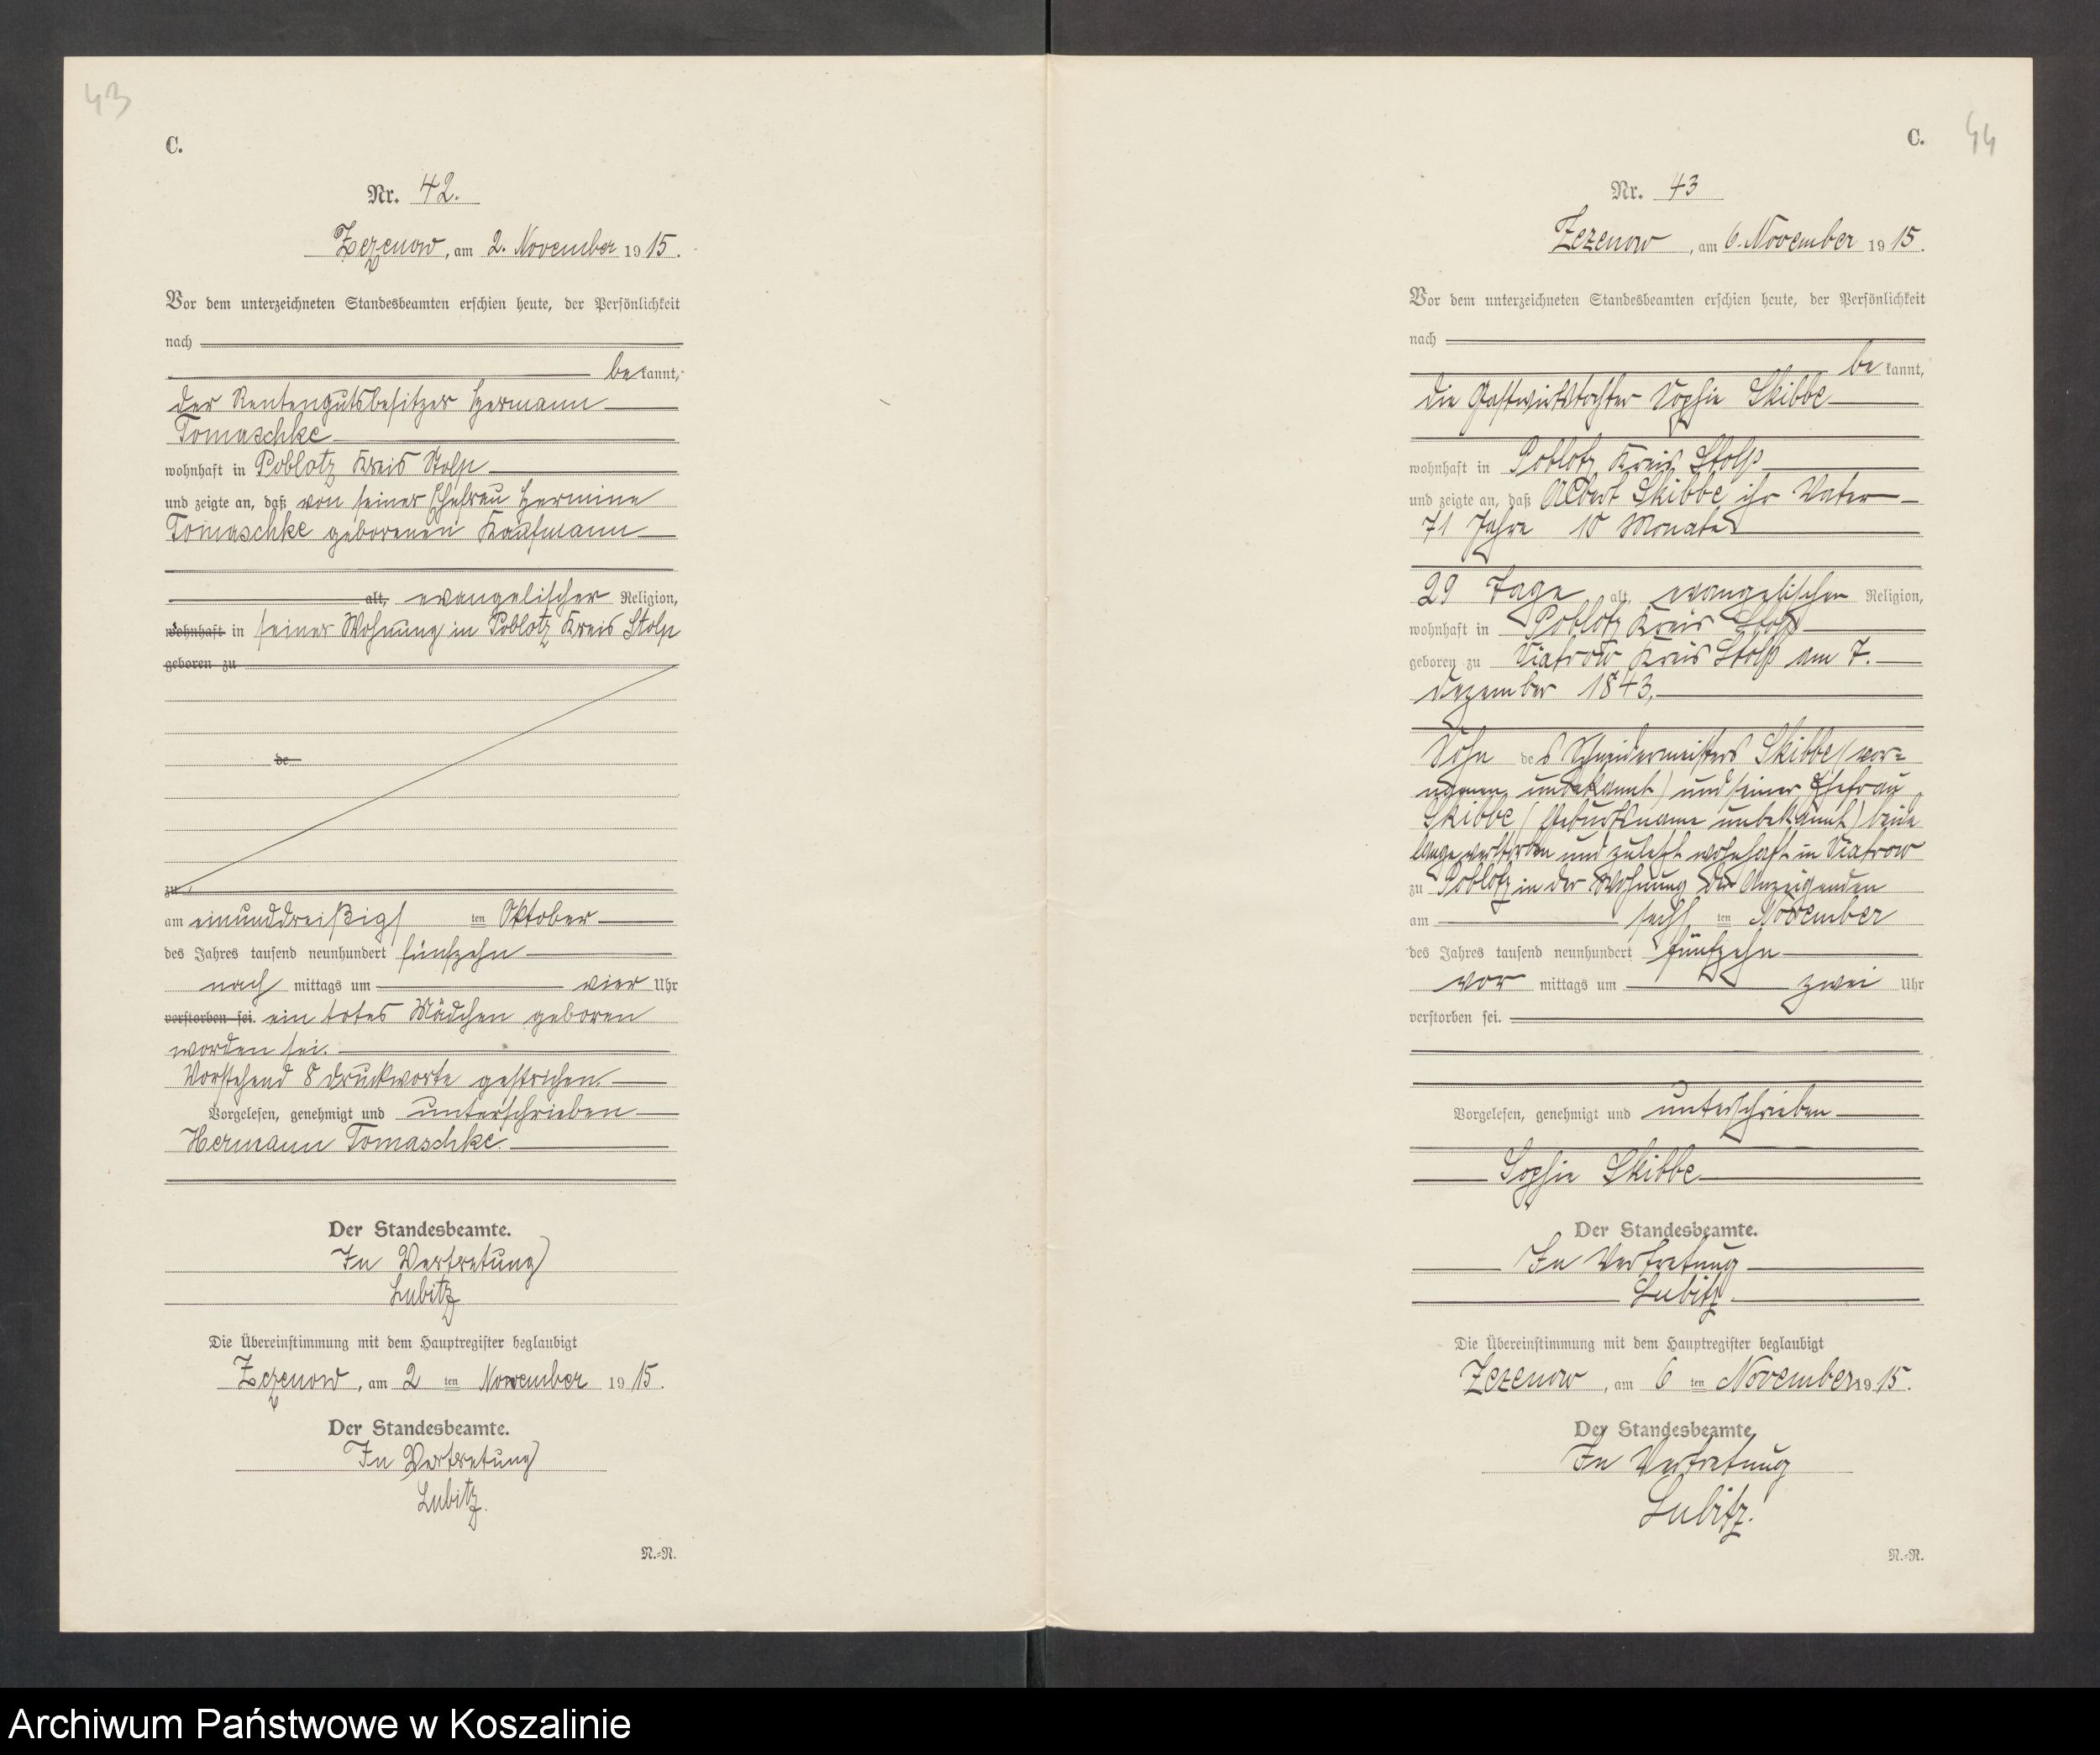 43
C.
Nr. 42.
Zezenow, am 2. November 1915.
Vor dem unterzeichneten Standesbeamten erschien heute, der Persönlichkeit
nach
be kannt,
der Rentengutsbesitzer Hermann
Tomaschke
wohnhaft in Poblotz Kreis Stolp
und zeigte an, daß von seiner Ehefrau Hermine
Tomaschke geborenen Kaufmann
alt, evangelischer Religion,
wohnhaft in seiner Wohnung in Poblotz Kreis Stolp
geboren zu
de
zu
am einunddreißigs ten Oktober
des Jahres tausend neunhundert fünfzehn
nach mittags um vier Uhr
verstorben sei. ein totes Mädchen geboren
worden sei.
Vorstehend 8 Druckworte gestrichen.
Vorgelesen, genehmigt und unterschrieben
Hermann Tomaschke.
Der Standesbeamte.
In Vertretung
Lubitz
Die Übereinstimmung mit dem Hauptregister beglaubigt
Zezenow, am 2 ten November 1915.
Der Standesbeamte.
In Vertretung
Lubitz.
N.=N.
C.
44
Nr. 43
Zezenow, am 6. November 1915.
Vor dem unterzeichneten Standesbeamten erschien heute, der Persönlichkeit
nach
be kannt,
die Gastwirtstochter Sophie Skibbe
wohnhaft in Poblotz Kreis Stolp
und zeigte an, daß Albert Skibbe ihr Vater
71 Jahre 10 Monate
29 Tage alt, evangelischer Religion,
wohnhaft in Poblotz Kreis Stolp
geboren zu Viatrow Kreis Stolp am 7.
Dezember 1843,
Sohn des Schneidermeisters Skibbe (vor=
namen unbekannt) und seiner Ehefrau
Skibbe (Geburtsname unbekannt) beide
lange verstorben und zuletzt wohnhaft in Viatrow
zu Poblotz in der Wohnung der Anzeigenden
am sechs ten November
des Jahres tausend neunhundert fünfzehn
vor mittags um zwei Uhr
verstorben sei.
Vorgelesen, genehmigt und unterschrieben
Sophie Skibbe
Der Standesbeamte.
In Vertretung
Lubitz.
Die Übereinstimmung mit dem Hauptregister beglaubigt
Zezenow, am 6 ten November 1915.
Der Standesbeamte.
In Vertretung
Lubitz.
N.=N.
Archiwum Państwowe w Koszalinie